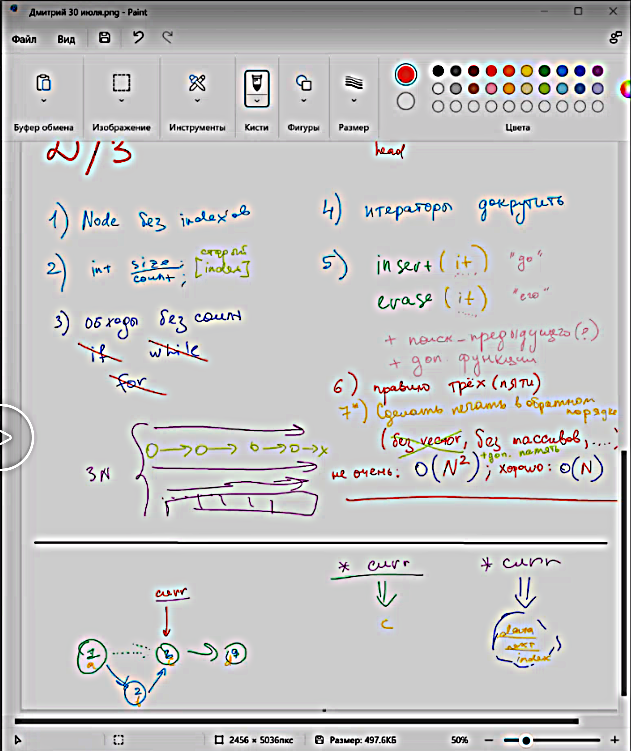 Дмитрий 30 июля.png - Paint
Файл Вид
Буфер обмена Изображение Инструменты Кисти Фигуры Размер Цвета
Д/З head
1) Node без index'ов
2) int size/count; [старый index]
3) обходы без count
if while
for
4) итераторы докрутить
5) insert (it) "до"
erase (it) "его"
+ поиск_предыдущего(?)
+ доп. функции
6) правило трёх (пяти)
7*) Сделать печать в обратном порядке
(без vector, без массивов, ....)
+доп. память
не очень: O(N²); хорошо: O(N)
3N
* curr * curr
c
data
next
index
curr
1
a
2